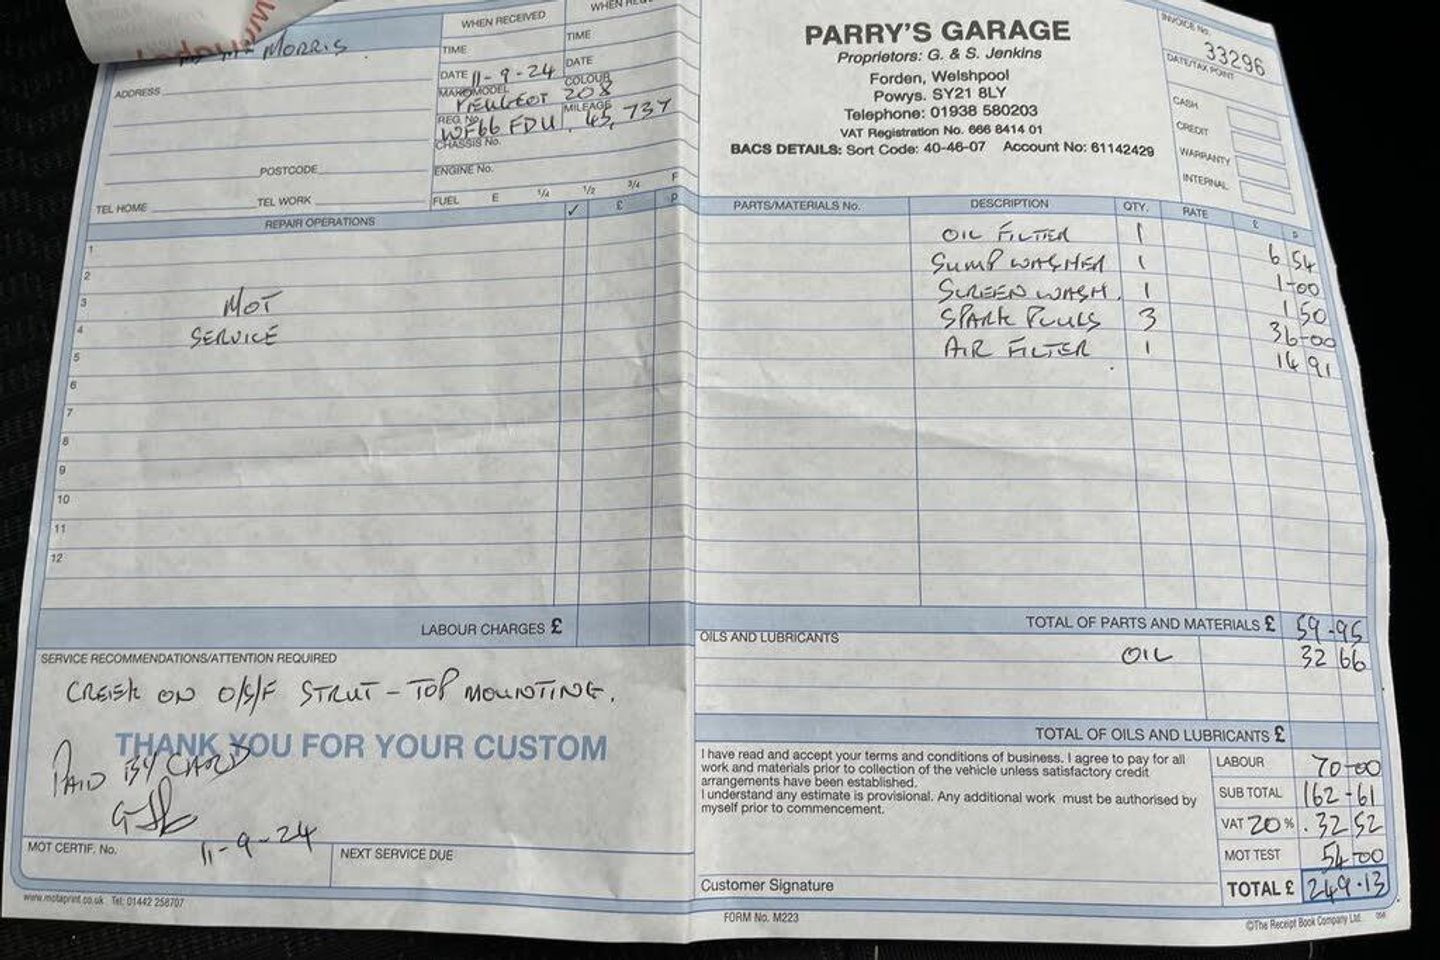 MORRIS
ADDRESS
POSTCODE
TEL HOME
TEL WORK
WHEN RECEIVED
TIME
DATE 11-9-24
MAKE/MODEL
PEUGEOT 208
REG. No.
WF66 FDU
CHASSIS No.
ENGINE No.
FUEL E 1/4 1/2 3/4 F
TIME
DATE
COLOUR
MILEAGE
45,737
PARRY'S GARAGE
Proprietors: G. & S. Jenkins
Forden, Welshpool
Powys. SY21 8LY
Telephone: 01938 580203
VAT Registration No. 666 8414 01
BACS DETAILS: Sort Code: 40-46-07 Account No: 61142429
INVOICE No.
33296
DATE/TAX POINT
CASH
CREDIT
WARRANTY
INTERNAL
REPAIR OPERATIONS ✓ £ P
1
2
3 MOT
4 SERVICE
5
6
7
8
9
10
11
12
LABOUR CHARGES £
SERVICE RECOMMENDATIONS/ATTENTION REQUIRED
CREEK ON O/S/F STRUT - TOP MOUNTING.
THANK YOU FOR YOUR CUSTOM
PAID BY CARD
11-9-24
MOT CERTIF. No.
NEXT SERVICE DUE
www.motaprint.co.uk Tel: 01442 258707
PARTS/MATERIALS No. DESCRIPTION QTY. RATE £ p
OIL FILTER 1 6 54
SUMP WASHER 1 1-00
SCREEN WASH. 1 1 50
SPARK PLUGS 3 36-00
AIR FILTER 1 14 91
TOTAL OF PARTS AND MATERIALS £ 59-95
OILS AND LUBRICANTS
OIL 32 66
TOTAL OF OILS AND LUBRICANTS £
I have read and accept your terms and conditions of business. I agree to pay for all
work and materials prior to collection of the vehicle unless satisfactory credit
arrangements have been established.
I understand any estimate is provisional. Any additional work must be authorised by
myself prior to commencement.
LABOUR 70-00
SUB TOTAL 162-61
VAT 20 % 32 52
MOT TEST 54-00
TOTAL £ 249.13
Customer Signature
FORM No. M223
©The Receipt Book Company Ltd.